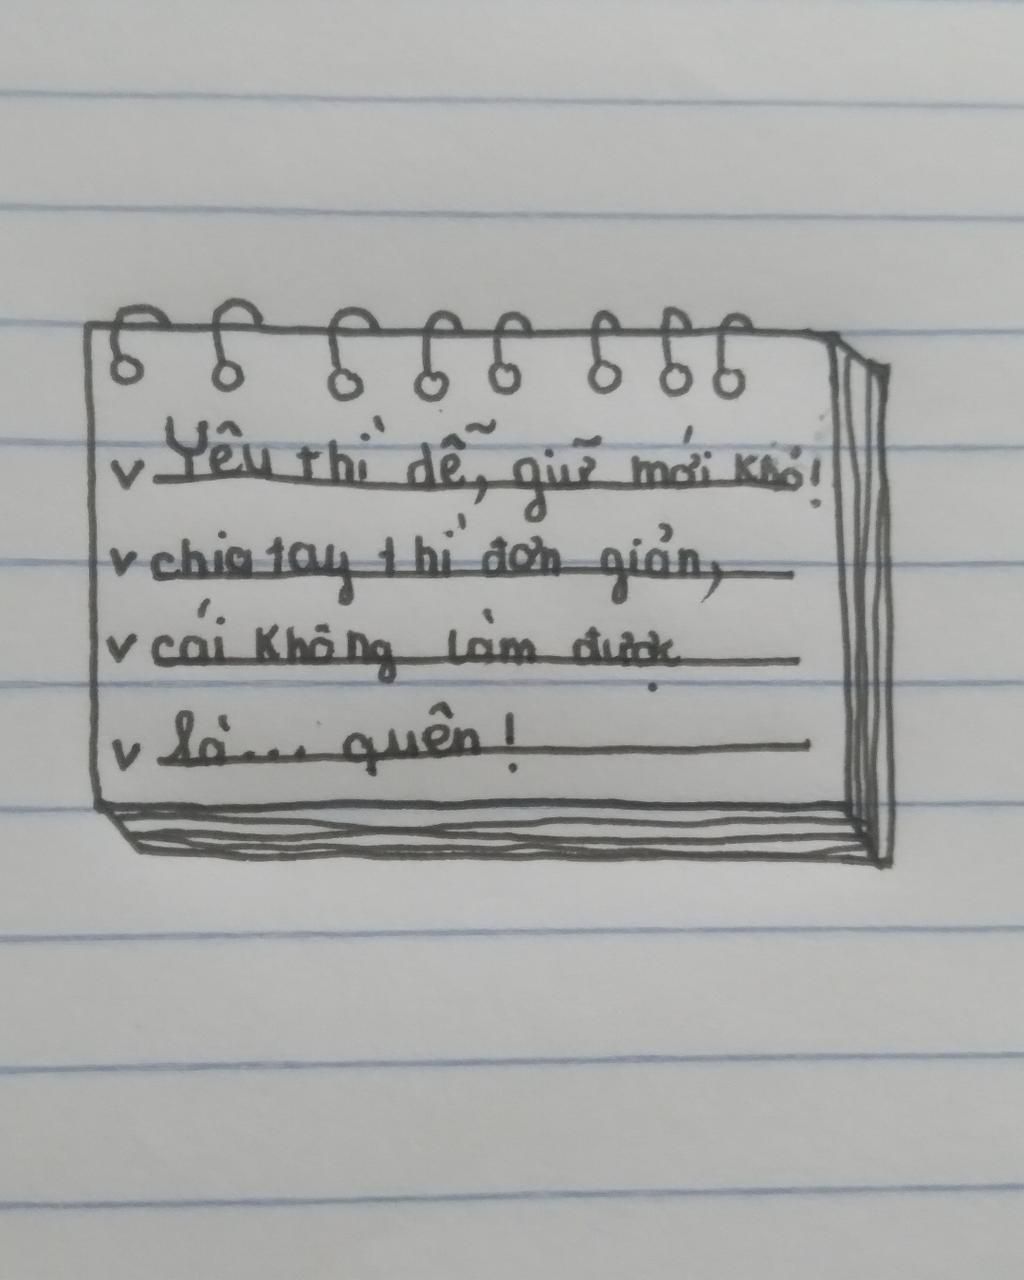 v Yêu thì dễ, giữ mới khó!
v chia tay thì đơn giản,
v cái không làm được
v là... quên!